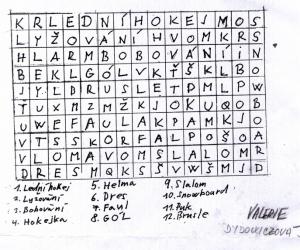 K R L E D N Í H O K E J M O S
L Y Ž O V A N Í H V O M K R S
H L A R M B O B O V Á N Í Í N
B E K L G Ó L V K Ť Š K L B O
J Y L D R U S L E T D M L P W
T U X M Z M Ž K J O K U Q O B
U W E F A U L A K P A M K J O
V T S S K O R F A L P O Š O A
V L O M A V O M S L A L O M R
D R E S M Q K S V Š W M S J D
1. Lední hokej 5. Helma 9. Slalom
2. Lyžování 6. Dres 10. Snowboard
3. Bobování 7. Faul 11. Puk
4. Hokejka 8. GÓL 12. Brusle
VALERIE